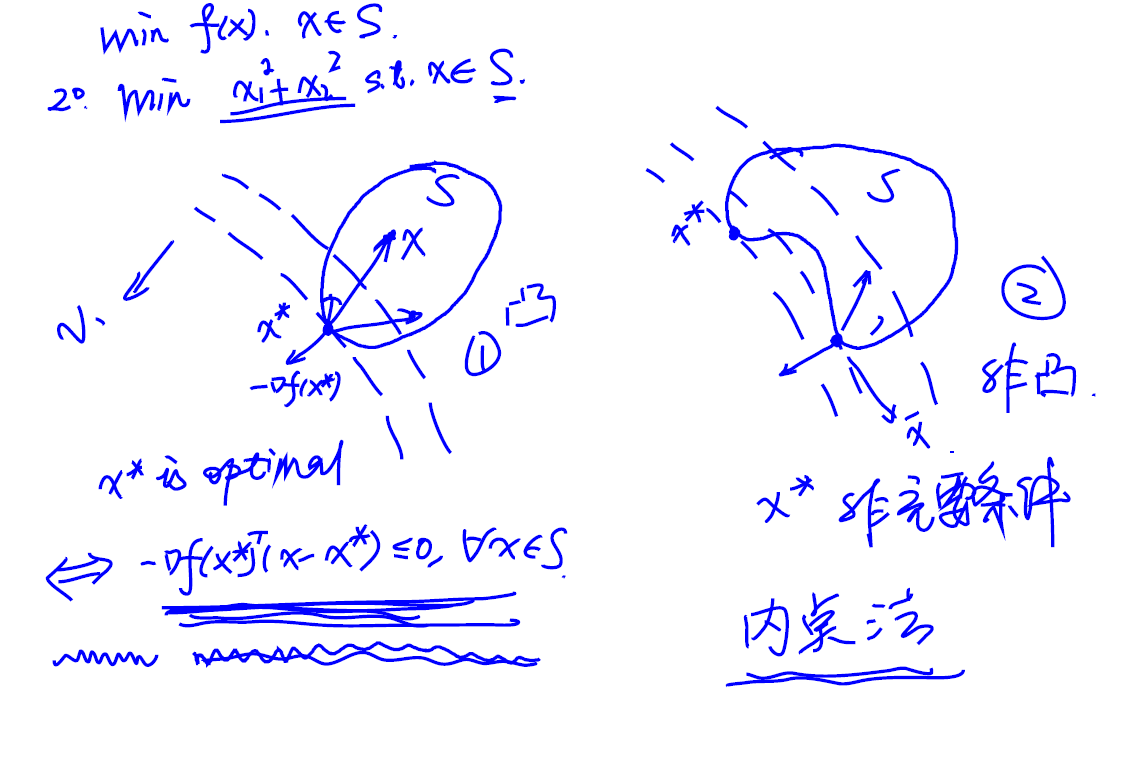 min f(x). x∈S.
2°. min x₁²+x₂² s.t. x∈S.
S
x
x*
-∇f(x*)
N.
① 凸
x* is optimal
⇔ -∇f(x*)ᵀ(x-x*)≤0, ∀x∈S.
S
x*
x̄
②
非凸.
x* 非充要条件
内点法